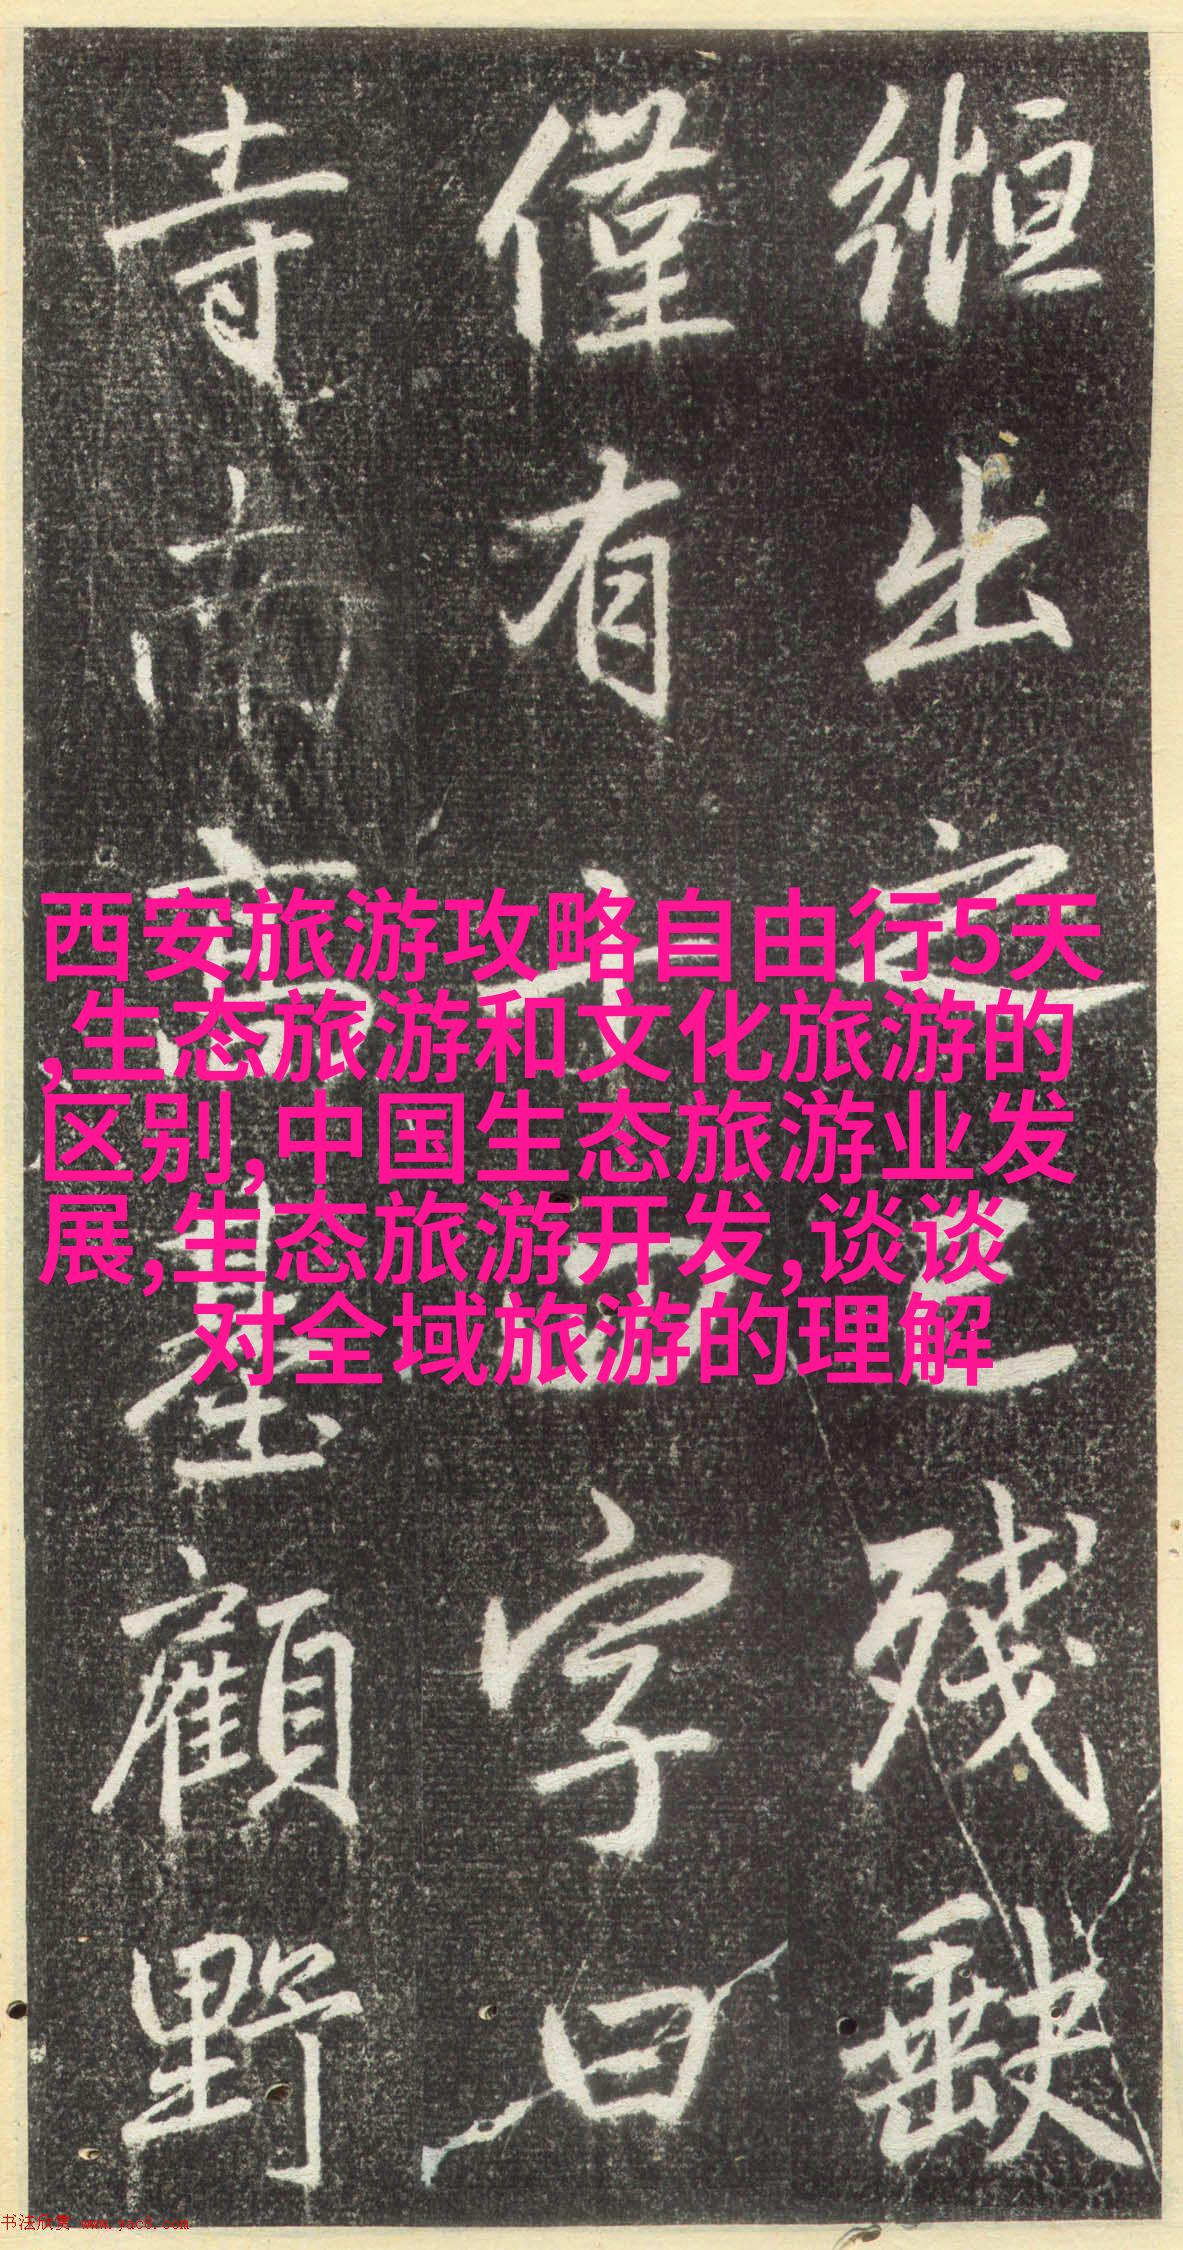 西安旅游攻略自由行5天
,生态旅游和文化旅游的
区别,中国生态旅游业发
展,生态旅游开发,谈谈
对全域旅游的理解
出之殘缺
僅有字曰
寺而高臺顧野
书法欣赏 www.yac8.com